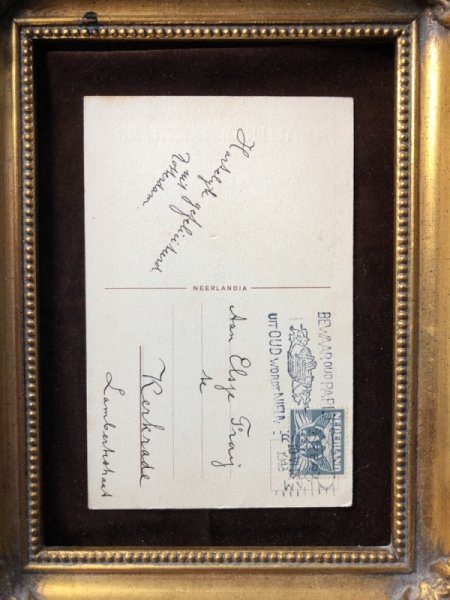 Hartelijk
Rotterdam
NEERLANDIA
Aan Elsje
te
Kerkrade
Lambertistraat
BEWAAR OUD PAPIER
UIT OUD WORDT NIEUW
NEDERLAND